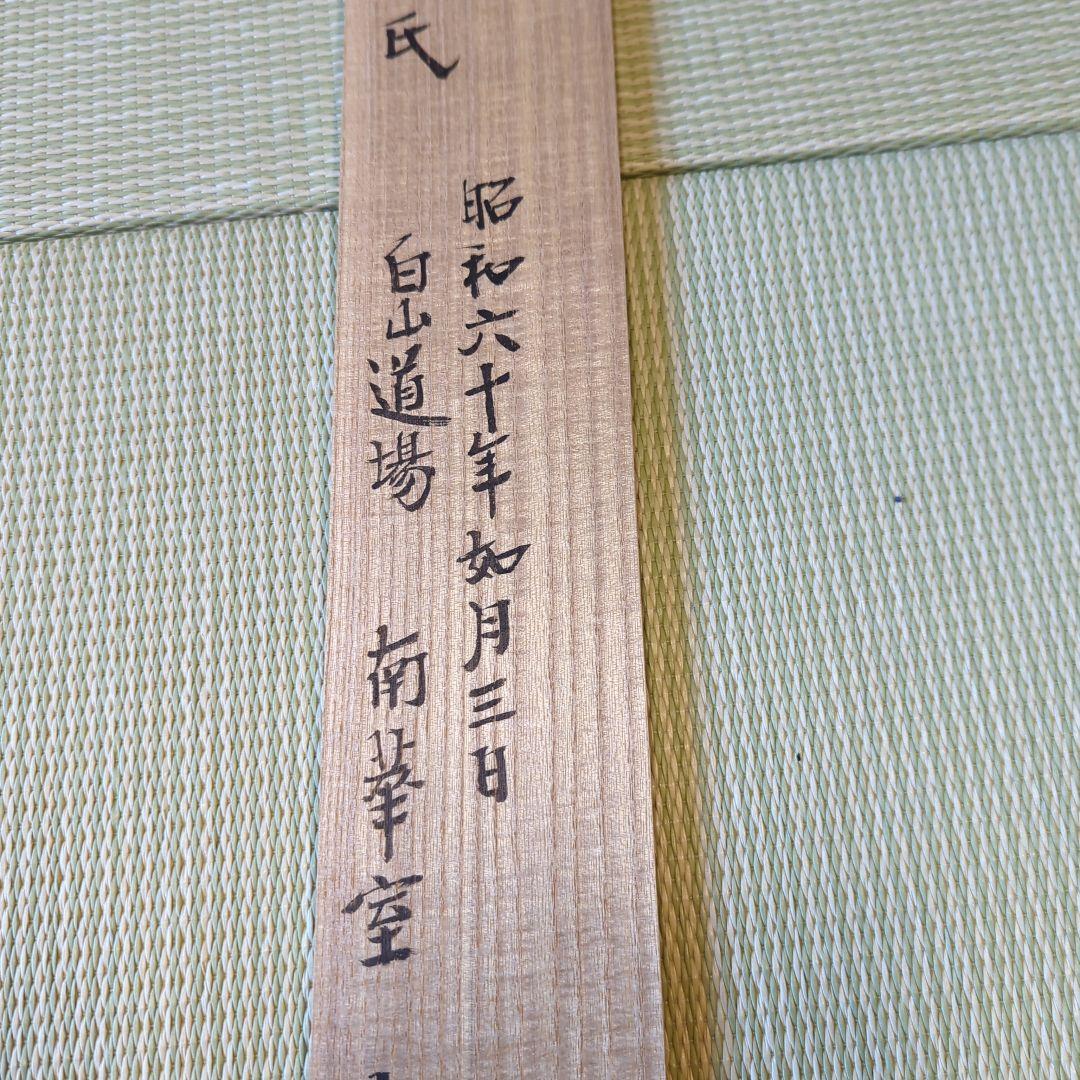 昭和六十年如月三日
氏 白山道場 南華室